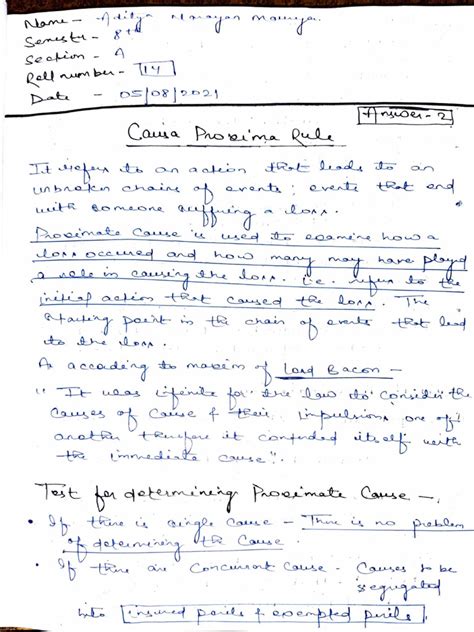 Name - Aditya Narayan Maurya
Semester - 8th
Section - A
Roll number - 14
Date - 05/08/2021
Answer - 2
Causa Proxima Rule
It refers to an action that leads to an
unbroken chains of events; events that end
with someone suffering a loss.
Proximate Cause is used to examine how a
loss occured and how many may have played
a role in causing the loss. i.e. refers to the
initial action that caused the loss. The
starting point in the chain of events that lead
to the loss.
As accoding to maxim of Lord Bacon -
" It was ifenite for the law to consider the
causes of cause & their impulsions one of
another therefore it contended itself with
the immediate cause".
Test for determining Proximate Cause -
• If there is single cause - There is no problem
of determining the Cause.
• If there are Concurrent Cause - Causes to be
segrigated
into insured perils & exempted perils.